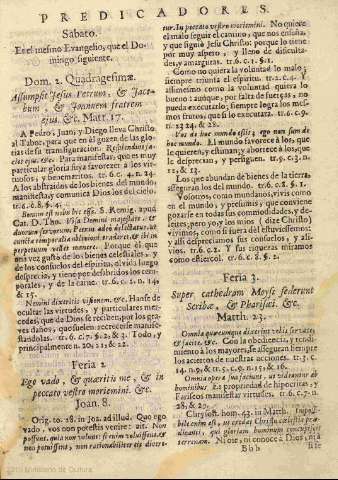 PREDICADORES.
Sabato.
Es el mesmo Evangelio, que el Do-
mingo siguiente.
Dom. 2. Quadragesimæ.
Assumpsit Jesus Petrum, & Jaco-
bum, & Joannem fratrem
ejus. &c. Matt. 17.
A Pedro, Juan, y Diego lleva Christo
al Tabor, para que en èl gozen de las glo-
rias de su transfiguracion.
&c. Para manifestar, que es muy
particular gloria suya favorecer à los vir-
tuosos, y benemeritos. tr. 6. c. 4. n. 24.
A los abstraidos de los bienes del mundo,
manifiesta, y comunica Dios los del cielo.
tr. 6. c. 8. §. 4.
Bonum est nobis hic esse. S. Remig. apud
Cat. D. Tho. Visa Domini majestate, & 
duorum servorum, Petrus adeò delectatur, ut
cuncta temporalia oblivioni traderet, & ibi in
perpetuum vellet manere. Porque èl que
una vez gustò de los bienes celestiales, y
de los consuelos del espiritu, olvida luego
desprecia, y tiene por desabridos los cor-
porales, y de la carne. tr. 6. c. 2. n. 14.
& 15.
Nemini dixeritis visionem. &c. Hanse de
ocultar las virtudes, y particulares mer-
cedes, que de Dios se reciben, por los gra-
ves daños, que suelen recrecerse manife-
standolas. tr. 6. c. 7. §. 2. & 3. Todo, y
principalmente n. 20; 21, & 22.
Feria 2.
Ego vado, & quæritis me, & in
peccato vestro moriemini. &c.
Joan. 8.
Orig. to. 28. in Joa. ad illud. Quo ego
vado, vos non potestis venire: ait. Non
possunt, quia non volunt: si enim voluissent, &
non potuissent, non rationabiliter eis diceretur.
In peccato vestro moriemini. No quiere
el malo seguir el camino, que nos enseña,
y que siguiò Jesu Christo: porque lo tiene
por muy aspero, y lleno de dificulta-
des, y amarguras. tr. 6. c. 1. §. 1.
Como no quiera la voluntad lo malo;
siempre triunfa el espiritu. tr. 2. c. 4. Y
assimesmo como la voluntad quiera lo
bueno: aunque, por falta de fuerças, no
pueda executarlo; siempre logra los mes-
mos frutos, que si lo executara. tr. 6. c. 9.
n. 23 24. & 25.
Vos de hoc mundo estis; ego non sum de
hoc mundo. El mundo favorece à los, que
le quieren, y le honran; y aborrece à los; que
le desprecian, y persiguen. tr. 9. c. 3. n.
11, & 13.
Los que abundan de bienes de la tierra,
aseguran los del mundo. tr. 6. c. 8. §. 5.
Vosotros, como mundanos, vivis como
en el mundo, y presumis, que conviene
gozarse en todas sus commodidades, y de-
leites; pero yo (y los mios) (dize Christo)
vivimos, como si fuera dèl estuviessemos:
y assi despreciamos sus consuelos, y ali-
vios. tr. 6. c. 2. Y sus riquezas miramos
como estiercol. tr. 6. c. 8. §. 2.
Feria 3.
Super cathedram Moysi sederunt
Scribæ, & Pharisæi. &c.
Matth. 23.
Omnia quæcunque dixerint vobis servate,
& facite. &c. Con la obediencia, y rendi-
miento à los mayores, se asseguran siempre
los aciertos de nuestras acciones. tr. 5. c.
14. n. 9, & tr. 5. c. 15. n. 10. & c. 16. n. 1.
Omnia opera sua faciunt, ut videantur ab
hominibus. Es propriedad de hipocritas, y
Fariseos manifestar virtudes. tr. 6. c. 7. n.
28, & 29.
Chrysost. hom. 43. in Matth. Impossi-
bile enim est, ut credat Christo cælestia præ-
dicanti, qui gloriam hominum concupiscit
terrenam. Ni oye, ni conoce à Dios, ni à
Bbb
2010 Ministerio de Cultura